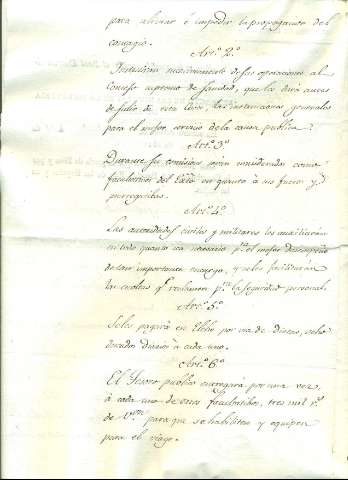 para aliviar é impedir la propaganda del
contagio.
Art.º 2.º
Instruirán mensualmente de sus operaciones al
Consejo supremo de Sanidad, que les dará
de de esta Corte, las instrucciones generales
para el mejor servicio de la causa publica.
Art.º 3º
Durante su comision, serán considerados como
facultativos del Exto en quanto á sus fueros y
prerrogativas.
Art.º 4º
Las autoridades civiles y militares les auxiliarán
en todo quanto sea necesario p.ª el mejor desempeño
de tan importante encargo, y les facilitarán
las escoltas q.e reclamen p.ª la seguridad personal.
Art.º 5.º
Se les pagará en por via de dietas,
diarios á cada uno.
Art.º 6º
El Tesoro publico entregará por una vez,
á cada uno de estos facultativos, tres mil r.s
de v.on para que se habiliten y equipen
para el viage.